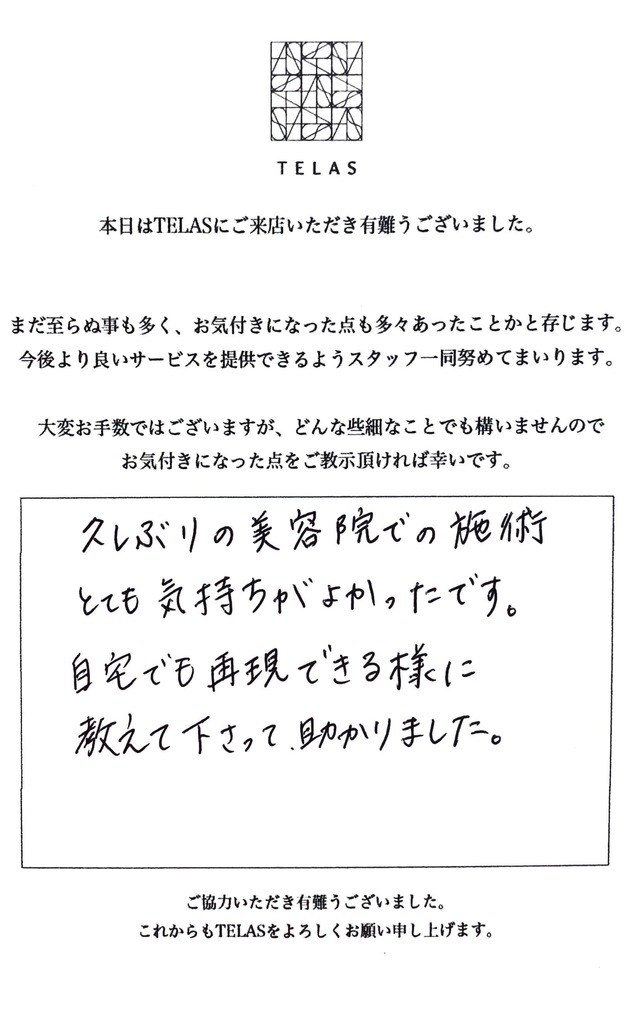 TELAS
本日はTELASにご来店いただき有難うございました。
まだ至らぬ事も多く、お気付きになった点も多々あったことかと存じます。
今後より良いサービスを提供できるようスタッフ一同努めてまいります。
大変お手数ではございますが、どんな些細なことでも構いませんので
お気付きになった点をご教示頂ければ幸いです。
久しぶりの美容院での施術
とても気持ちがよかったです。
自宅でも再現できる様に
教えて下さって、助かりました。
ご協力いただき有難うございました。
これからもTELASをよろしくお願い申し上げます。